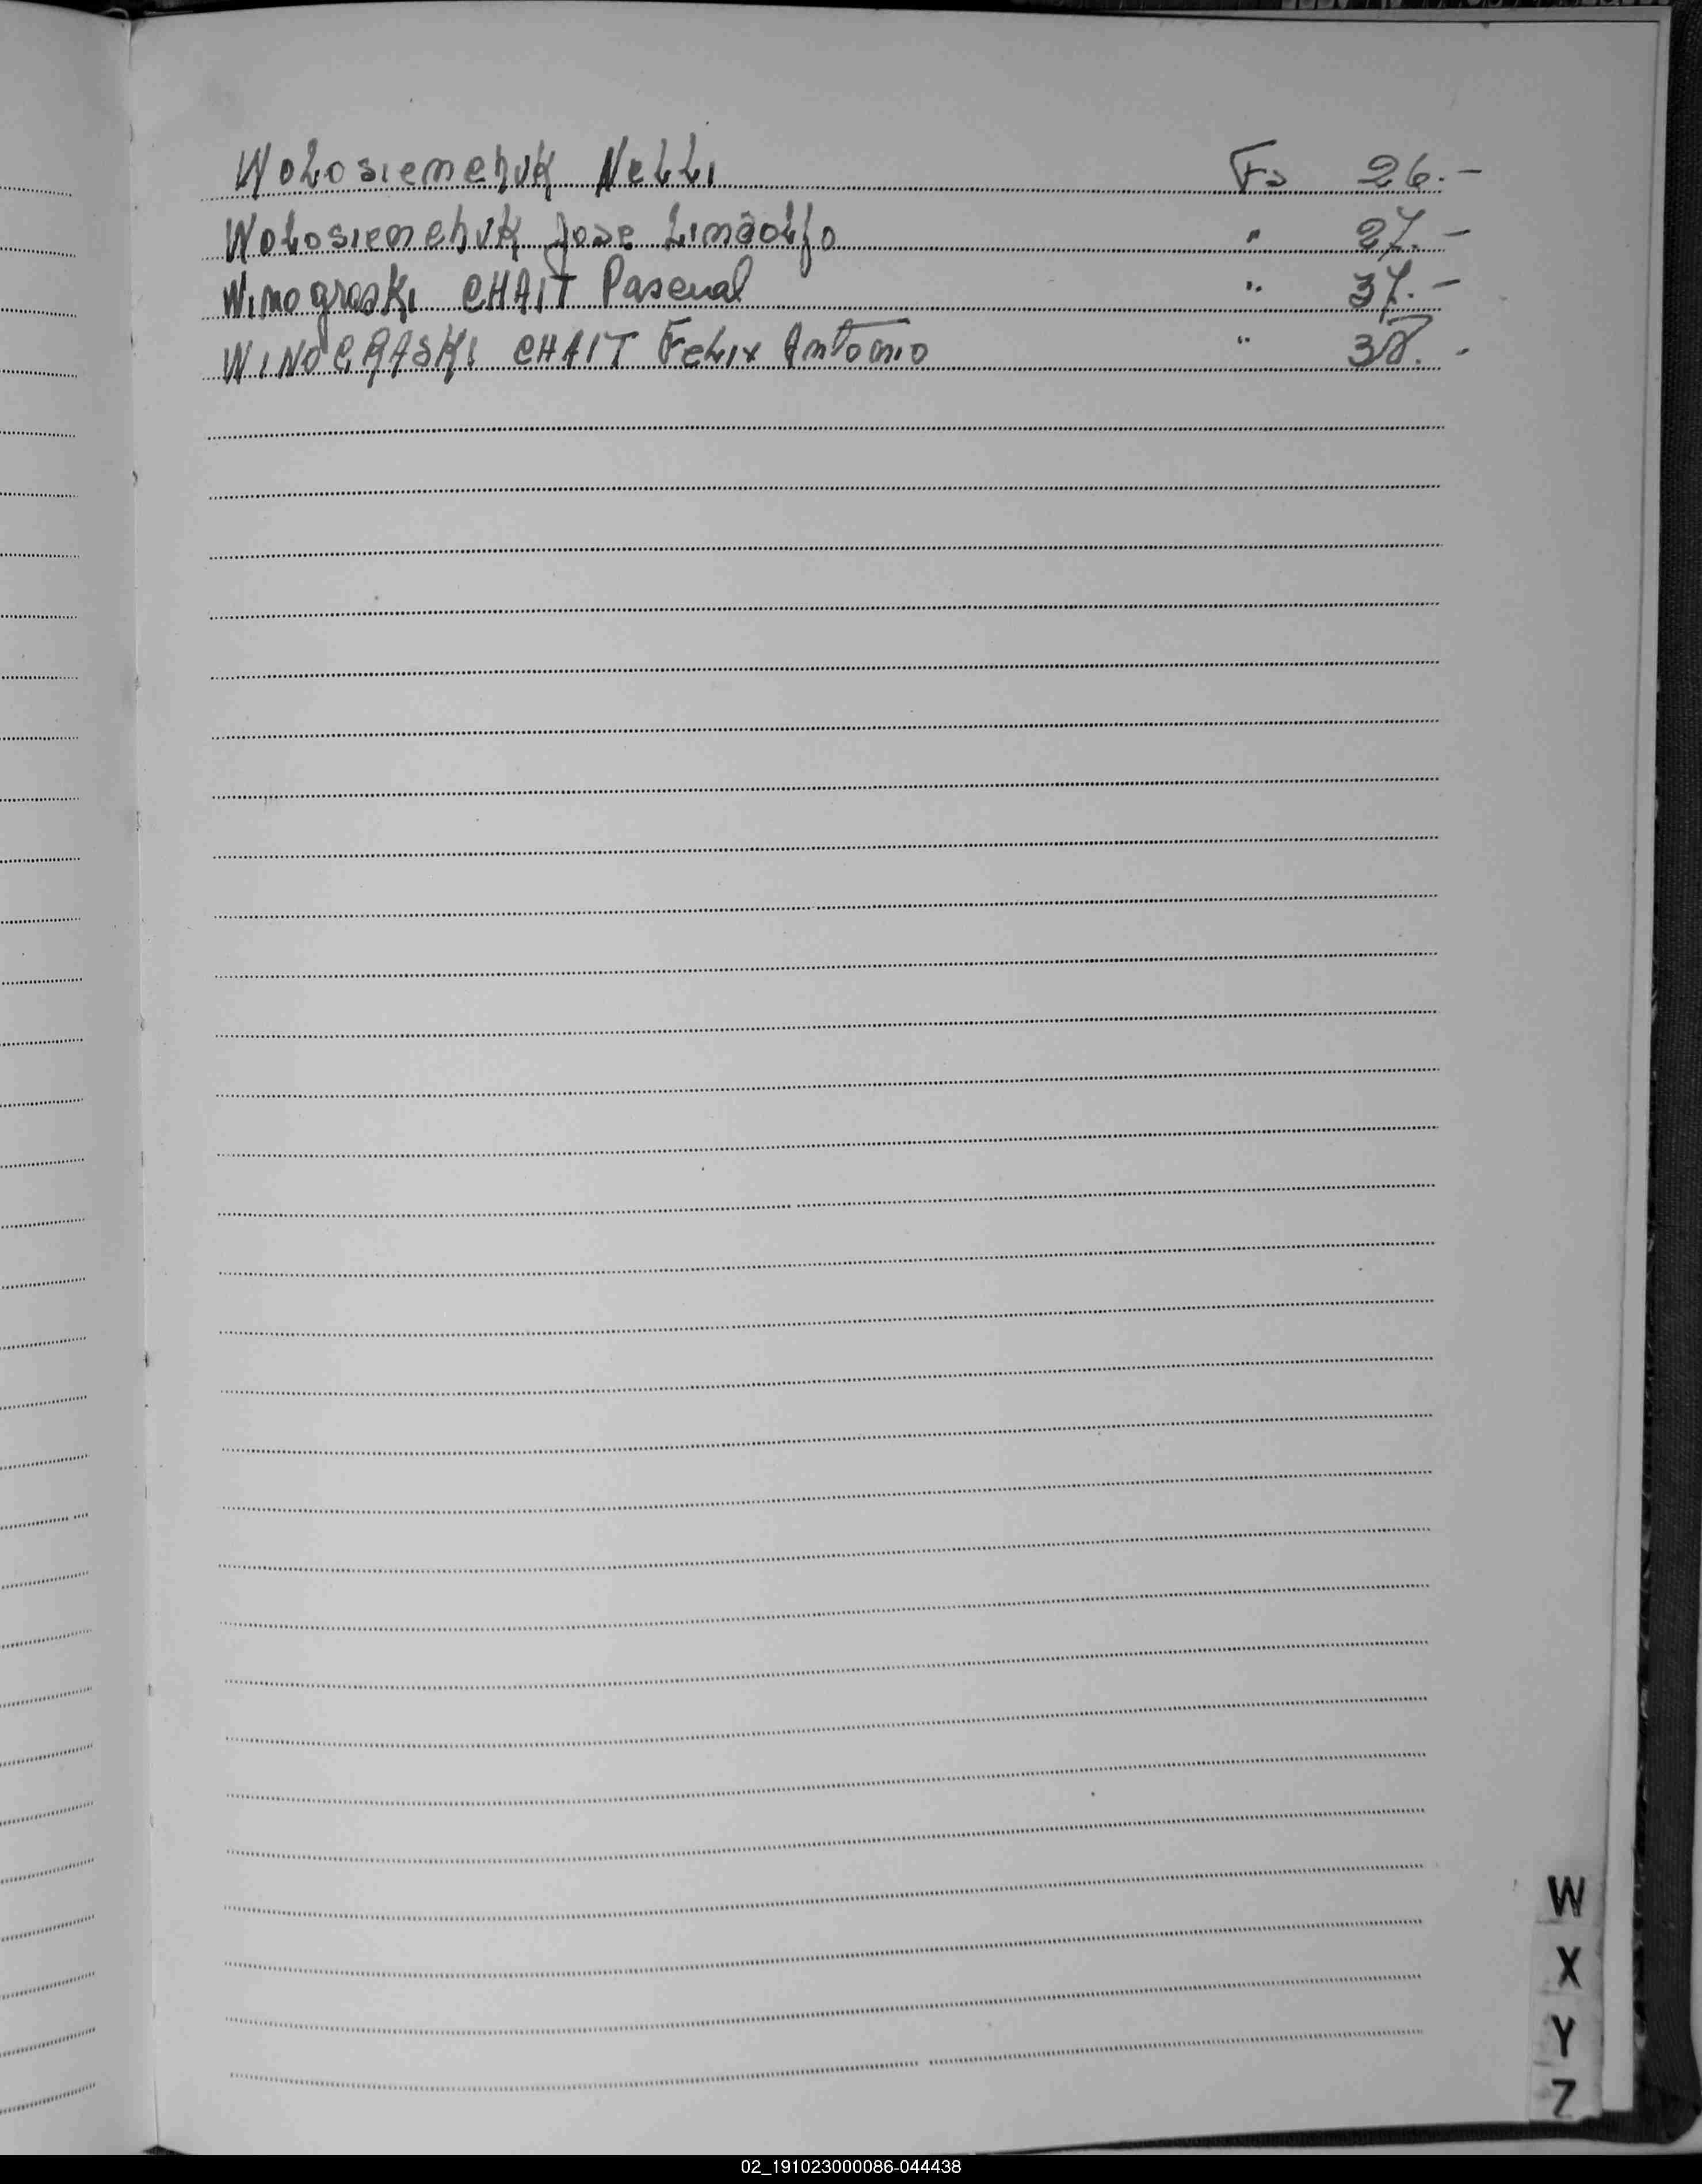 Wolosiemchuk Nelli Fs 26.-
Wolosiemchuk Jose Lindolfo " 27.-
Winograski CHAIT Pascual " 37.-
WINOGRASKI CHAIT Felix Antonio " 38.-
W
X
Y
Z
02_191023000086-044438